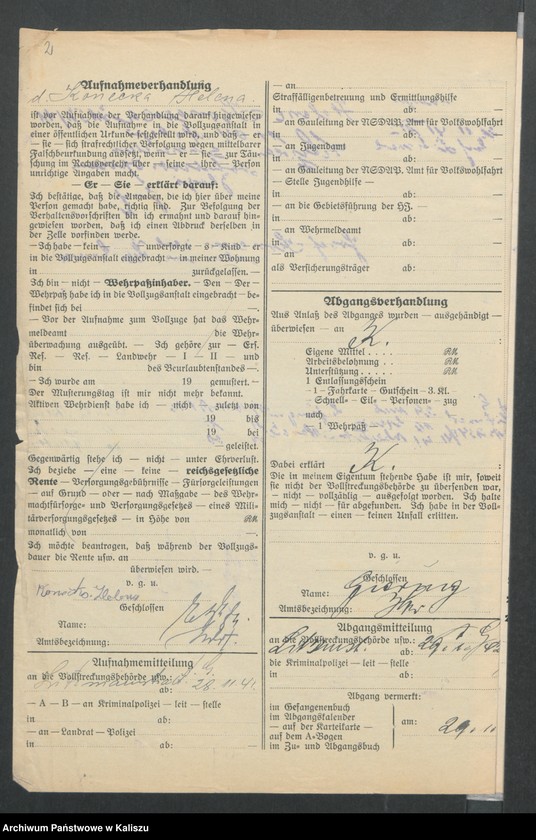 2
Aufnahmeverhandlung
d. Konecka Helena.
ist vor Aufnahme der Verhandlung darauf hingewiesen
worden, daß die Aufnahme in die Vollzugsanstalt in
einer öffentlichen Urkunde festgestellt wird, und daß — er
— sie — sich strafrechtlicher Verfolgung wegen mittelbarer
Falschbeurkundung aussetzt, wenn — er — sie — zur Täu-
schung im Rechtsverkehr über — seine — ihre — Person
unrichtige Angaben macht.
— Er — Sie — erklärt darauf:
Ich bestätige, daß die Angaben, die ich hier über meine
Person gemacht habe, richtig sind. Zur Befolgung der
Verhaltensvorschriften bin ich ermahnt und darauf hin-
gewiesen worden, daß ich einen Abdruck derselben in
der Zelle vorfinden werde.
— Ich habe — kein unversorgte — s — Kind —
in die Vollzugsanstalt eingebracht — in meiner Wohnung
in zurückgelassen. —
Ich bin — nicht — Wehrpaßinhaber. — Den — Der —
Wehrpaß habe ich in die Vollzugsanstalt eingebracht — be-
findet sich bei —.
— Vor der Aufnahme zum Vollzuge hat das Wehr-
meldeamt die Wehr-
überwachung ausgeübt. — Ich gehöre zur — Ers.
Res. — Res. — Landwehr — I — II — und
bin des Beurlaubtenstandes —.
— Ich wurde am 19 gemustert. —
Der Musterungstag ist mir nicht mehr bekannt.
Aktiven Wehrdienst habe ich — nicht — zuletzt von
19 bis
19 bei
geleistet.
Gegenwärtig stehe ich — nicht — unter Ehrverlust.
Ich beziehe — eine — keine — reichsgesetzliche
Rente — Versorgungsgebührnisse — Fürsorgeleistungen
— auf Grund — oder — nach Maßgabe — des Wehr-
machtfürsorge- und Versorgungsgesetzes — eines Mili-
tärversorgungsgesetzes — in Höhe von RM.
monatlich von —.
Ich möchte beantragen, daß während der Vollzugs-
dauer die Rente usw. an
überwiesen wird. —
v. g. u.
Konecka Helena
Geschlossen
Name:
Amtsbezeichnung:
Aufnahmemitteilung
an die Vollstreckungsbehörde usw.:
ab: 26. 11. 41.
— A — B — an Kriminalpolizei — leit — stelle
in ab:
— an — Landrat — Polizei
in ab: —
— an
Straffälligenbetreuung und Ermittlungshilfe
in ab: —
— an Gauleitung der NSDAP. Amt für Volkswohlfahrt
in ab: —
— an Jugendamt
in ab: —
— an Gauleitung der NSDAP. Amt für Volkswohlfahrt
— Stelle Jugendhilfe —
in ab: —
— an die Gebietsführung der HJ. —
in ab: —
— an Wehrmeldeamt
in ab: —
— an
als Versicherungsträger ab: —
Abgangsverhandlung
Aus Anlaß des Abganges wurden — ausgehändigt —
überwiesen — an K. :
Eigene Mittel . . . . RM.
Arbeitsbelohnung . . RM.
Unterstützung . . . . RM.
1 Entlassungsschein
— 1 — Fahrkarte — Gutschein — 3. Kl.
— Schnell- — Eil- — Personen- — zug
nach
— 1 Wehrpaß —
Dabei erklärt K. :
Die in meinem Eigentum stehende Habe ist mir, soweit
sie nicht der Vollstreckungsbehörde zu übersenden war,
— nicht — vollzählig — ausgefolgt worden. Ich halte
mich — nicht — für abgefunden. Ich habe in der Voll-
zugsanstalt — einen — keinen Unfall erlitten.
v. g. u.
Geschlossen
Name:
Amtsbezeichnung:
Abgangsmitteilung
an die Vollstreckungsbehörde usw.:
ab:
die Kriminalpolizei — leit — stelle
in ab:
Abgang vermerkt:
im Gefangenenbuch
im Abgangskalender
— auf der Karteikarte —
auf dem A-Bogen
im Zu- und Abgangsbuch
am: 29. 11
Archiwum Państwowe w Kaliszu